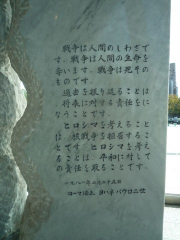 戦争は人間のしわざで
す。戦争は人間の生命を
奪います。戦争は死その
ものです。
過去を振り返ることは
将来に対する責任をに
なうことです。
ヒロシマを考えること
は、核戦争を拒否するこ
とです。ヒロシマを考え
ることは、平和に対して
の責任を取ることです。
一九八一年二月二十五日
ローマ法王 ヨハネ・パウロ二世